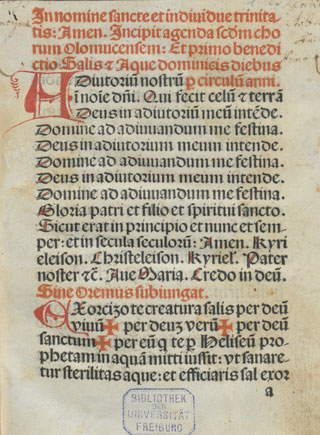 In nomine sancte et individue trinita
tis: Amen. Incipit agenda scďm cho
rum Olomucensem: Et primo benedi
ctio Salis et Aque dominicis diebus
Adiutoriũ nostrũ ꝑ circulũ anni.
in noĩe dñi. Qui fecit celũ et terrã
Deus in adiutoriũ meũ intẽde.
Domine ad adiuuandum me festina.
Deus in adiutorium meum intende.
Domine ad adiuuandum me festina.
Deus in adiutorium meum intende.
Domine ad adiuuandum me festina.
Gloria patri et filio et spiritui sancto.
Sicut erat in principio et nunc et sem-
per: et in secula seculorũ: Amen. Kyri
eleison. Christeleison. Kyriel'. Pater
noster ⁊c̃. Aue Maria. Credo in deũ.
Sine Oremus subiungat.
EXorcizo te creatura salis per deũ
viuũ ✠ per deuz verũ ✠ per deũ
sanctum ✠ per eũ q te ꝑ Heliseũ pro-
phetam in aquã mitti iussit: vt sanare-
tur sterilitas aque: et efficiaris sal exor
a
BIBLIOTHEK
DER
UNIVERSITÄT
FREIBURG